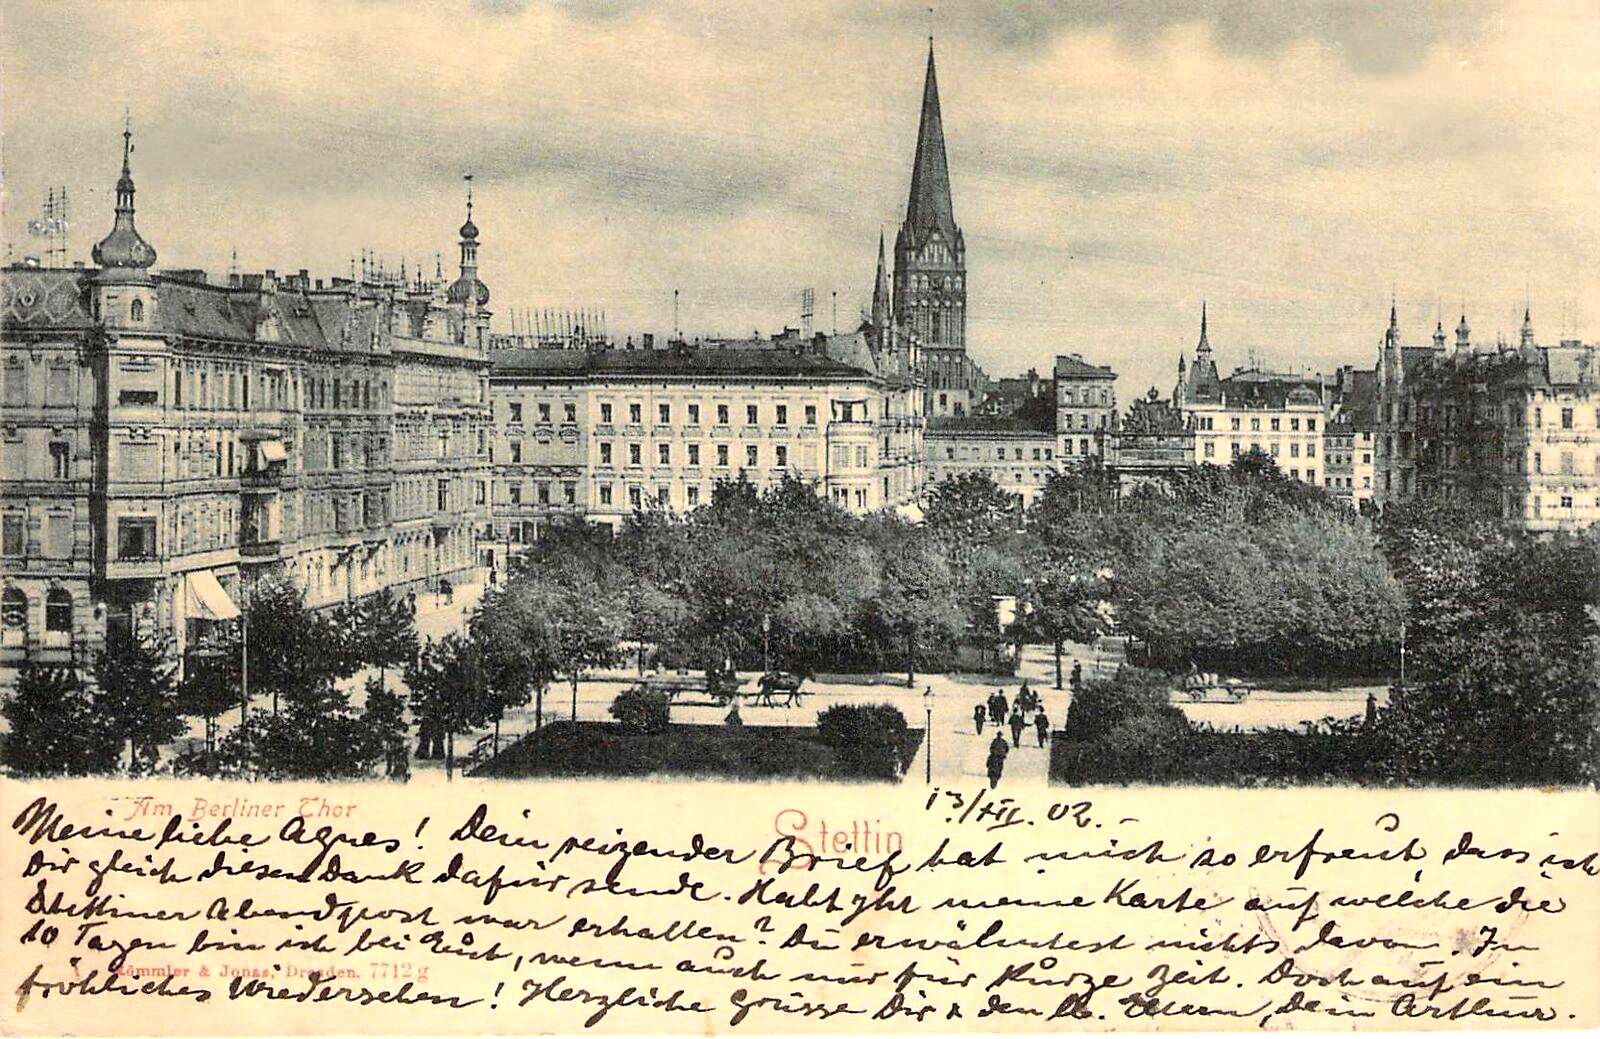 Am Berliner Thor
Stettin
13/XII. 02. –
Meine liebe Agnes! Dein reizender Brief hat mich so erfreut, dass ich
Dir gleich diesen Dank dafür sende. Habt Ihr meine Karte auf welche die
Stettiner Abendpost war erhalten? Du erwähntest nichts davon. In
10 Tagen bin ich bei Euch, wenn auch nur für kurze Zeit. Doch auf ein
Römmler & Jonas, Dresden. 7712 g
fröhliches Wiedersehen! Herzliche Grüsse Dir & den lb. Eltern, Dein Arthur.